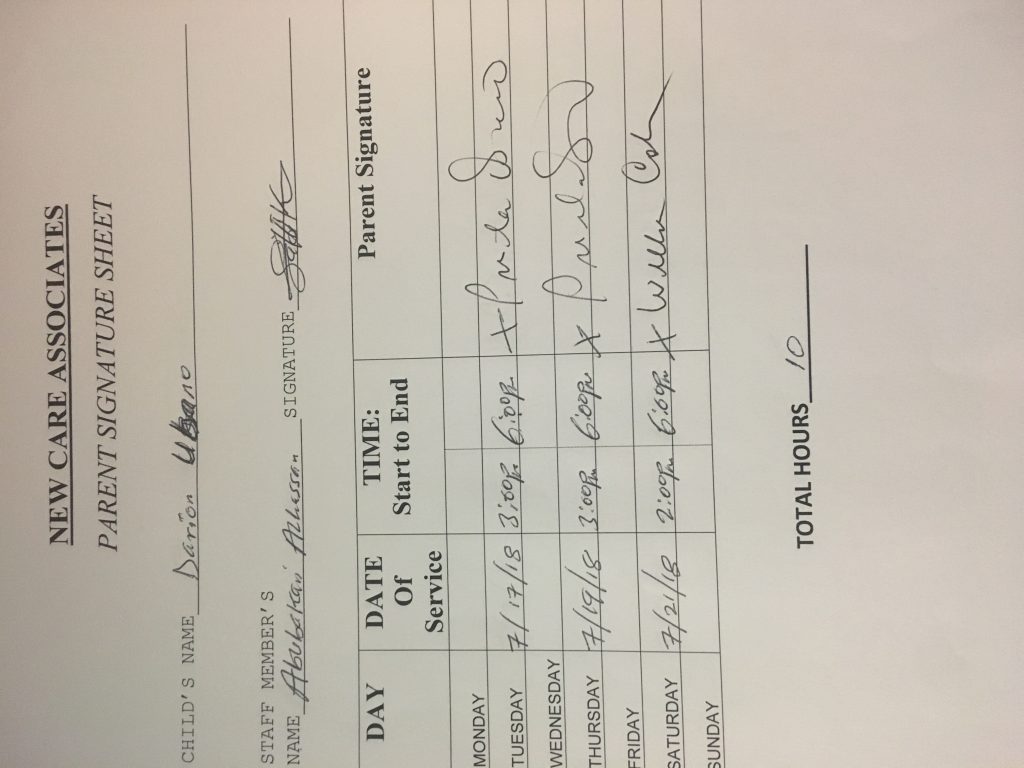 NEW CARE ASSOCIATES
PARENT SIGNATURE SHEET
CHILD'S NAME Darion
STAFF MEMBER'S
NAME Abubakari Alhassan SIGNATURE
DAY DATE Of Service TIME: Start to End Parent Signature
MONDAY
TUESDAY 7/17/18 3:00pm 6:00pm X
WEDNESDAY
THURSDAY 7/19/18 3:00pm 6:00pm X
FRIDAY
SATURDAY 7/21/18 2:00pm 6:00pm X
SUNDAY
TOTAL HOURS 10